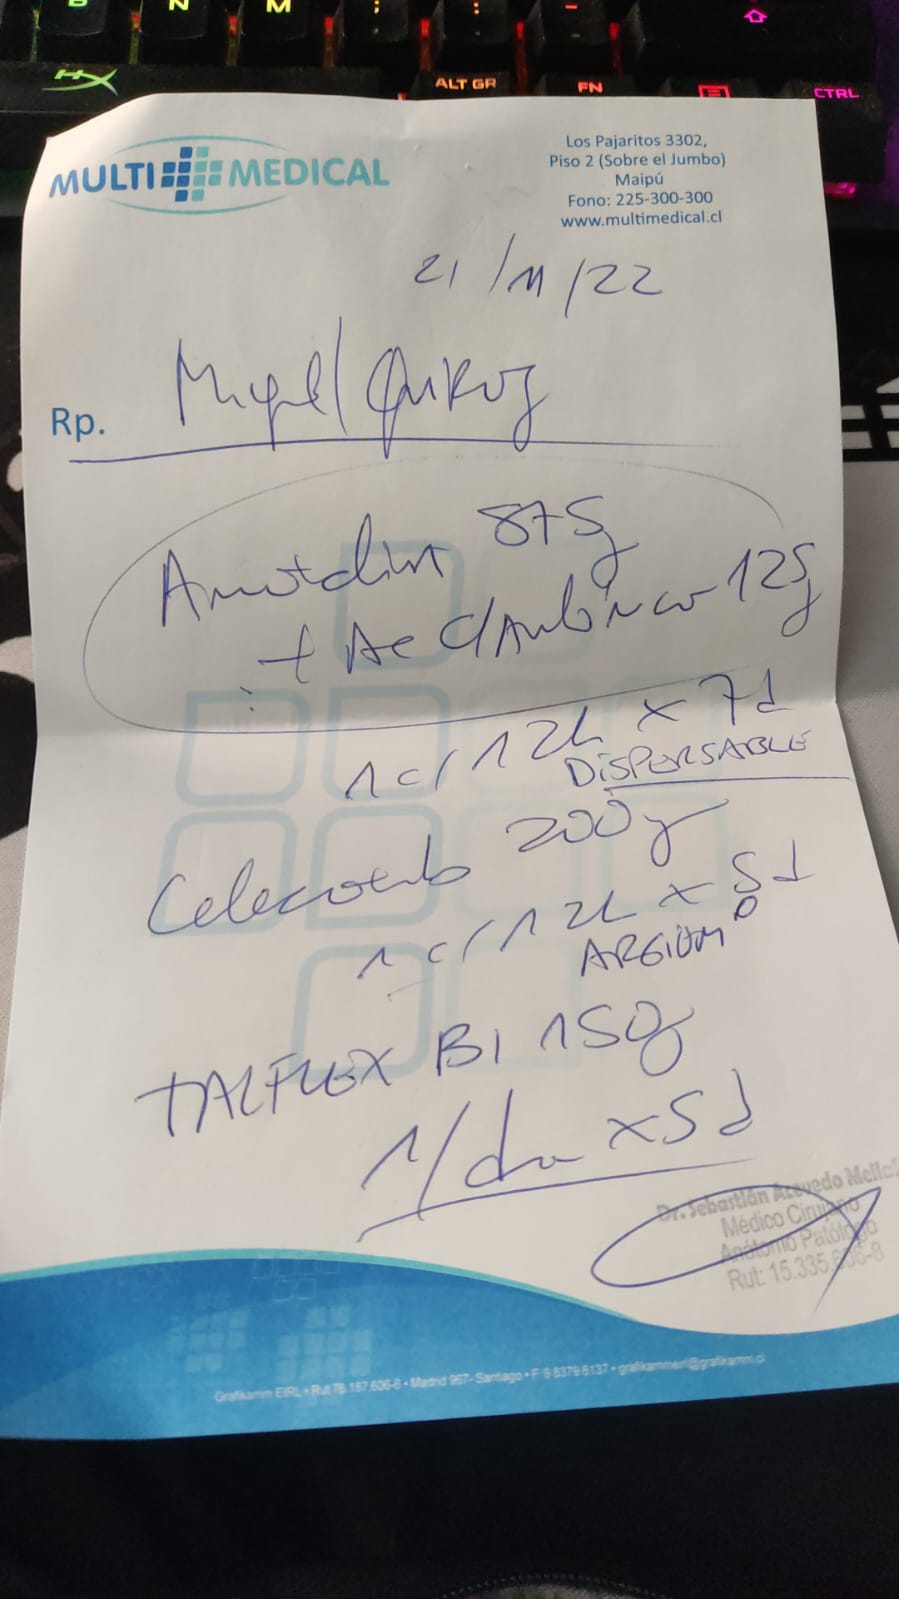 N M ; : -
HX ALT GR FN CTRL
MULTI MEDICAL
Los Pajaritos 3302,
Piso 2 (Sobre el Jumbo)
Maipú
Fono: 225-300-300
www.multimedical.cl
21/11/22
Rp. Miguel Quiroz
Amoxicilina 875g
+ Ac Clavulánico 125g
1 c/12h x 7d
DISPERSABLE
Celecoxib 200g
1 c/12h x 5d
ARGIUM
TALFLEX BI 150g
1/dia x 5d
Dr. Sebastián Acevedo
Médico Cirujano
Anátomo Patólogo
Rut: 15.335.
Grafikamm EIRL • Rut 76.187.606-6 • Madrid 967- Santiago • F: 9 8379 6137 • grafikammeirl@grafikamm.cl